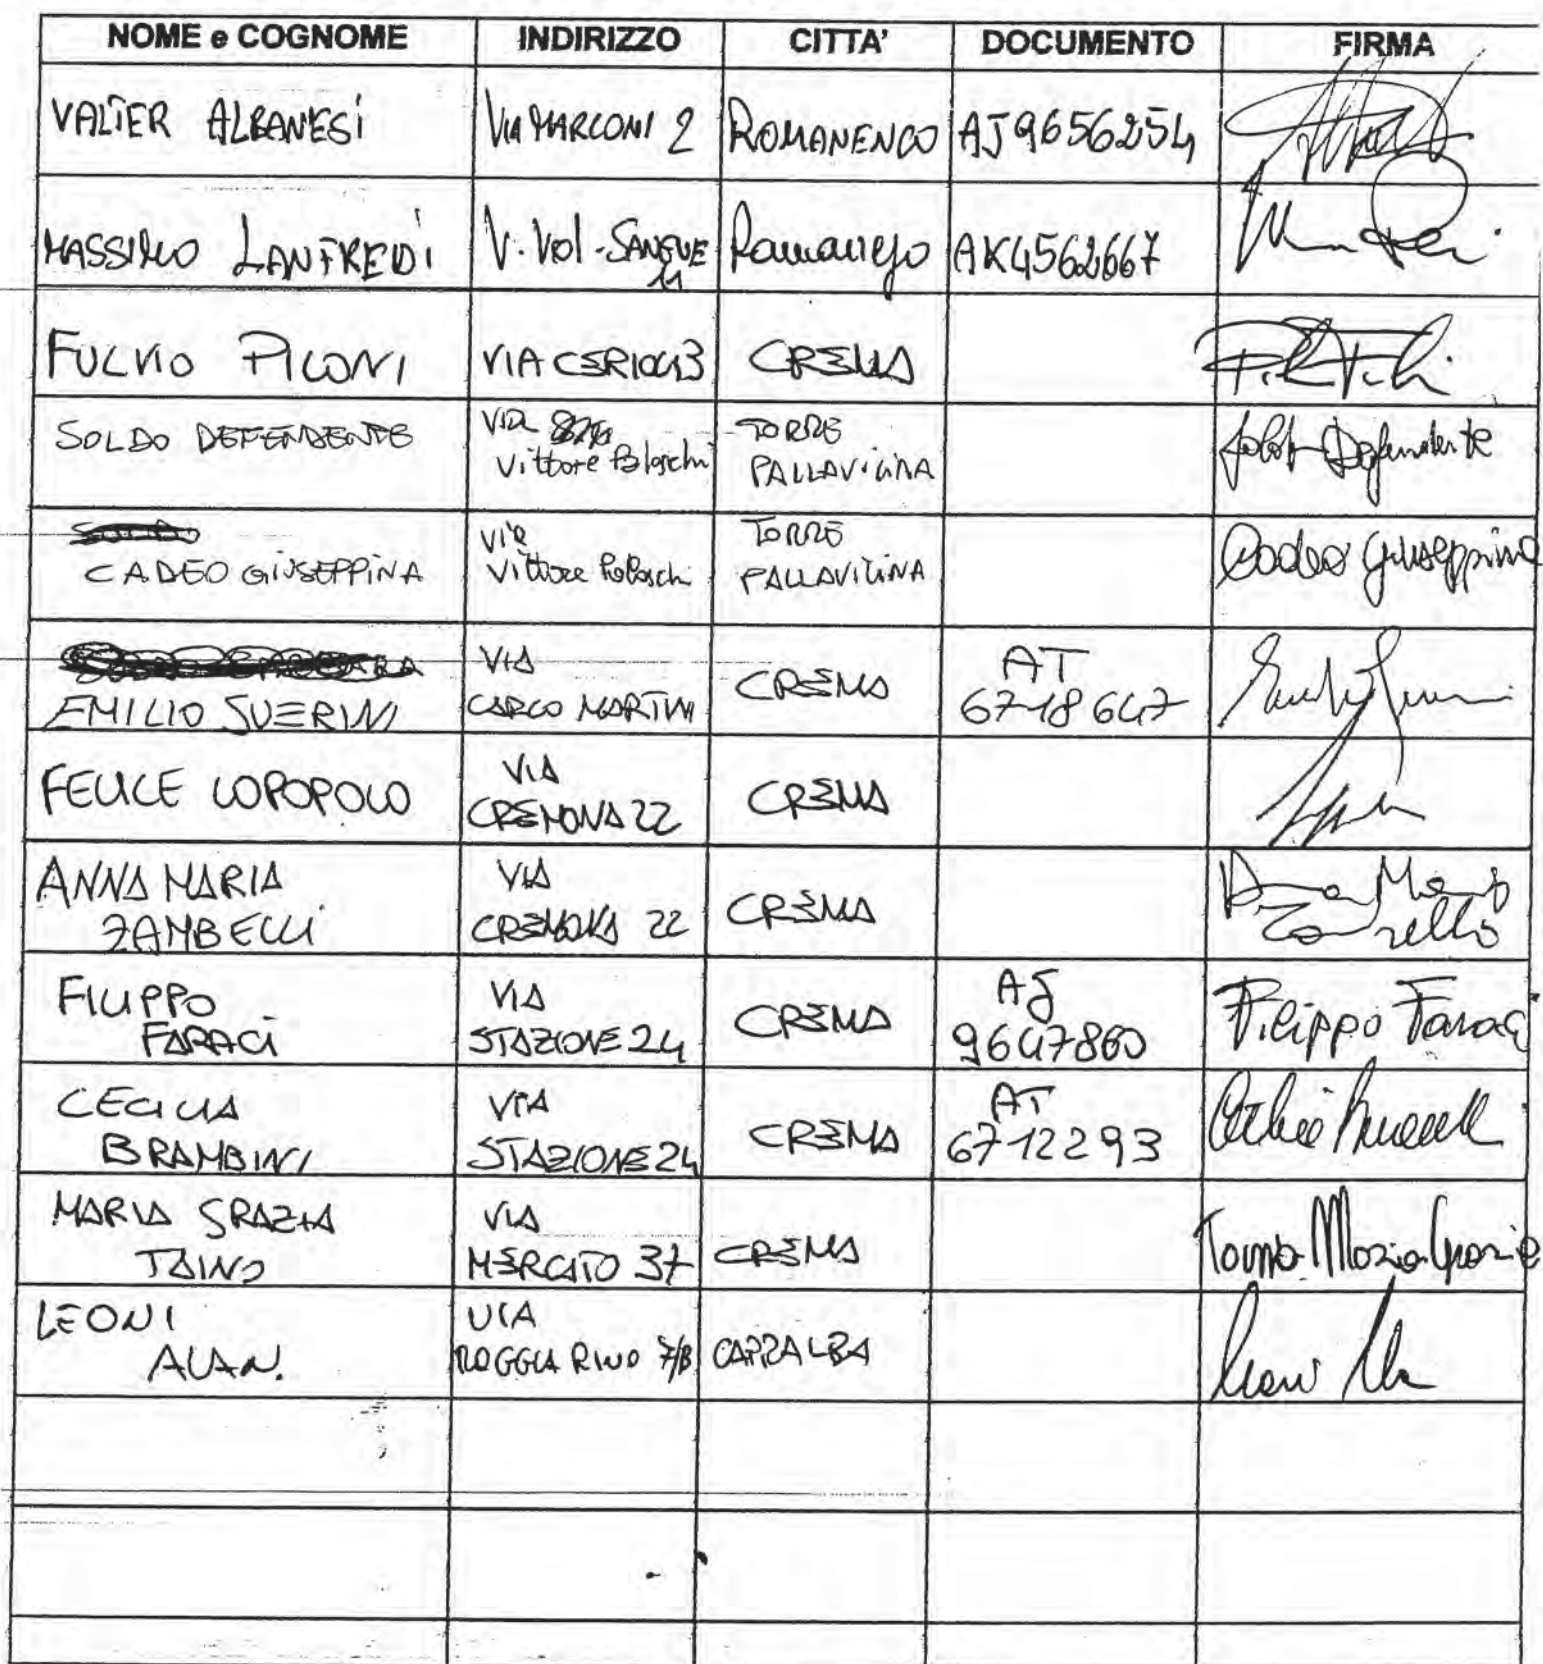 NOME e COGNOME INDIRIZZO CITTA' DOCUMENTO FIRMA
VALTER ALBANESI VIA MARCONI 2 ROMANENGO AJ9656254
MASSIMO LANFREDI V. Vol. SANGUE 11 Romanengo AK4562667
FULVIO PICONI VIA CERIOLI 3 CREMA
SOLDO DEFENDENTE VIA Vittore TORRE PALLAVICINA Defendente
CADEO GIUSEPPINA VIA Vittore TORRE PALLAVICINA Cadeo Giuseppina
EMILIO SUERINI VIA CARLO MARTINI CREMA AT 6718647
FELICE LOPOPOLO VIA CREMONA 22 CREMA
ANNA MARIA ZAMBELLI VIA CREMONA 22 CREMA Anna Maria
FILIPPO FARACI VIA STAZIONE 24 CREMA AJ 9647860 Filippo Faraci
CECILIA BRAMBINI VIA STAZIONE 24 CREMA AT 6712293
MARIA GRAZIA TAINO VIA MERCATO 37 CREMA Taino Maria Grazia
LEONI ALAN. VIA ROGGIA RINO 7/B CAPRALBA Leoni